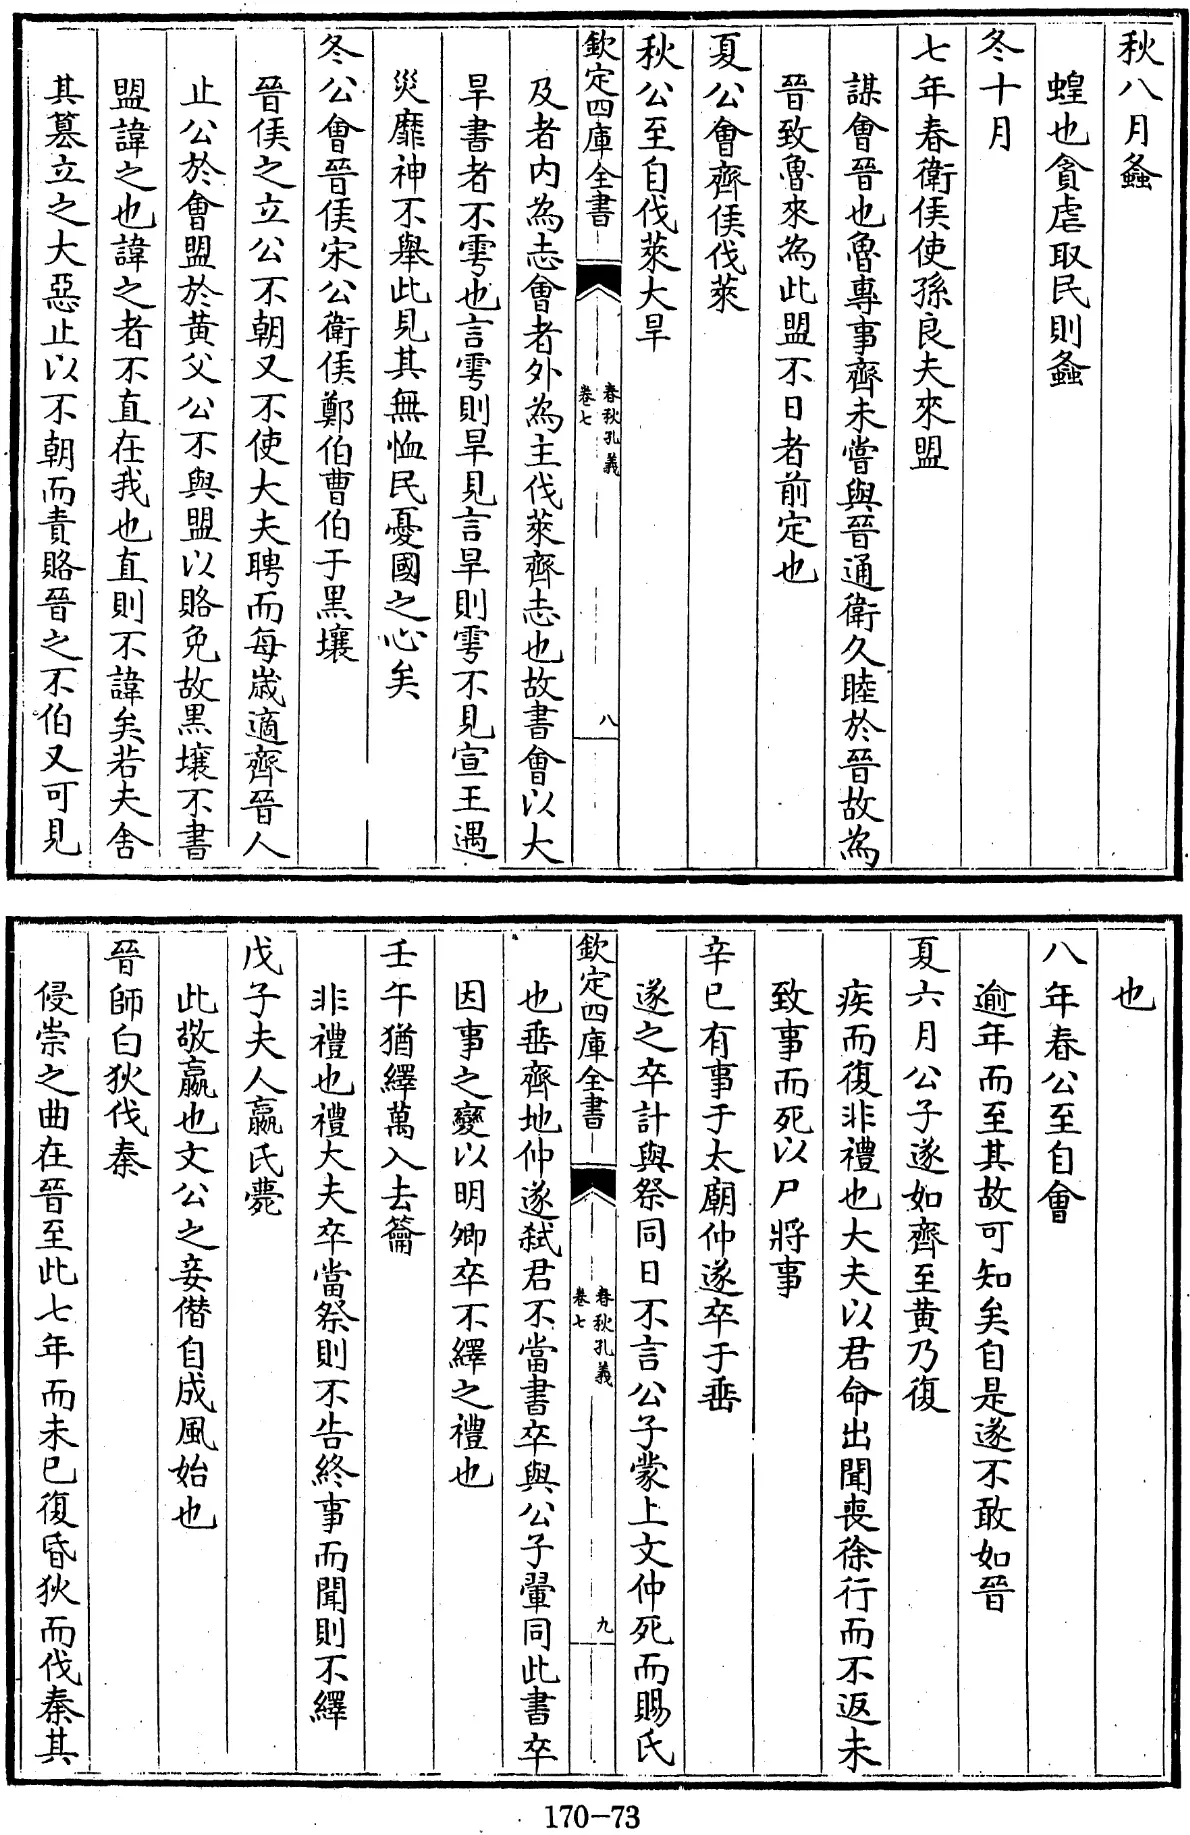 秋八月螽
蝗也貪虐取民則螽
冬十月
七年春衛侯使孫良夫來盟
謀會晉也魯專事齊未嘗與晉通衛久睦於晉故為
晉致魯來為此盟不日者前定也
夏公會齊侯伐萊
秋公至自伐萊大旱
欽定四庫全書
春秋孔義
卷七
八
及者内為志會者外為主伐萊齊志也故書會以大
旱書者不雩也言雩則旱見言旱則雩不見宣王遇
災靡神不舉此見其無恤民憂國之心矣
冬公會晉侯宋公衛侯鄭伯曹伯于黑壤
晉侯之立公不朝又不使大夫聘而每歲適齊晉人
止公於會盟於黄父公不與盟以賂免故黑壤不書
盟諱之也諱之者不直在我也直則不諱矣若夫舍
其簒立之大惡止以不朝而責賂晉之不伯又可見
也
八年春公至自會
逾年而至其故可知矣自是遂不敢如晉
夏六月公子遂如齊至黄乃復
疾而復非禮也大夫以君命出聞喪徐行而不返未
致事而死以尸將事
辛巳有事于太廟仲遂卒于垂
遂之卒計與祭同日不言公子蒙上文仲死而賜氏
欽定四庫全書
春秋孔義
卷七
九
也垂齊地仲遂弑君不當書卒與公子翬同此書卒
因事之變以明卿卒不繹之禮也
壬午猶繹萬入去籥
非禮也禮大夫卒當祭則不告終事而聞則不繹
戊子夫人嬴氏薨
此敬嬴也文公之妾僭自成風始也
晉師白狄伐秦
侵崇之曲在晉至此七年而未已復昏狄而伐秦其
170-73